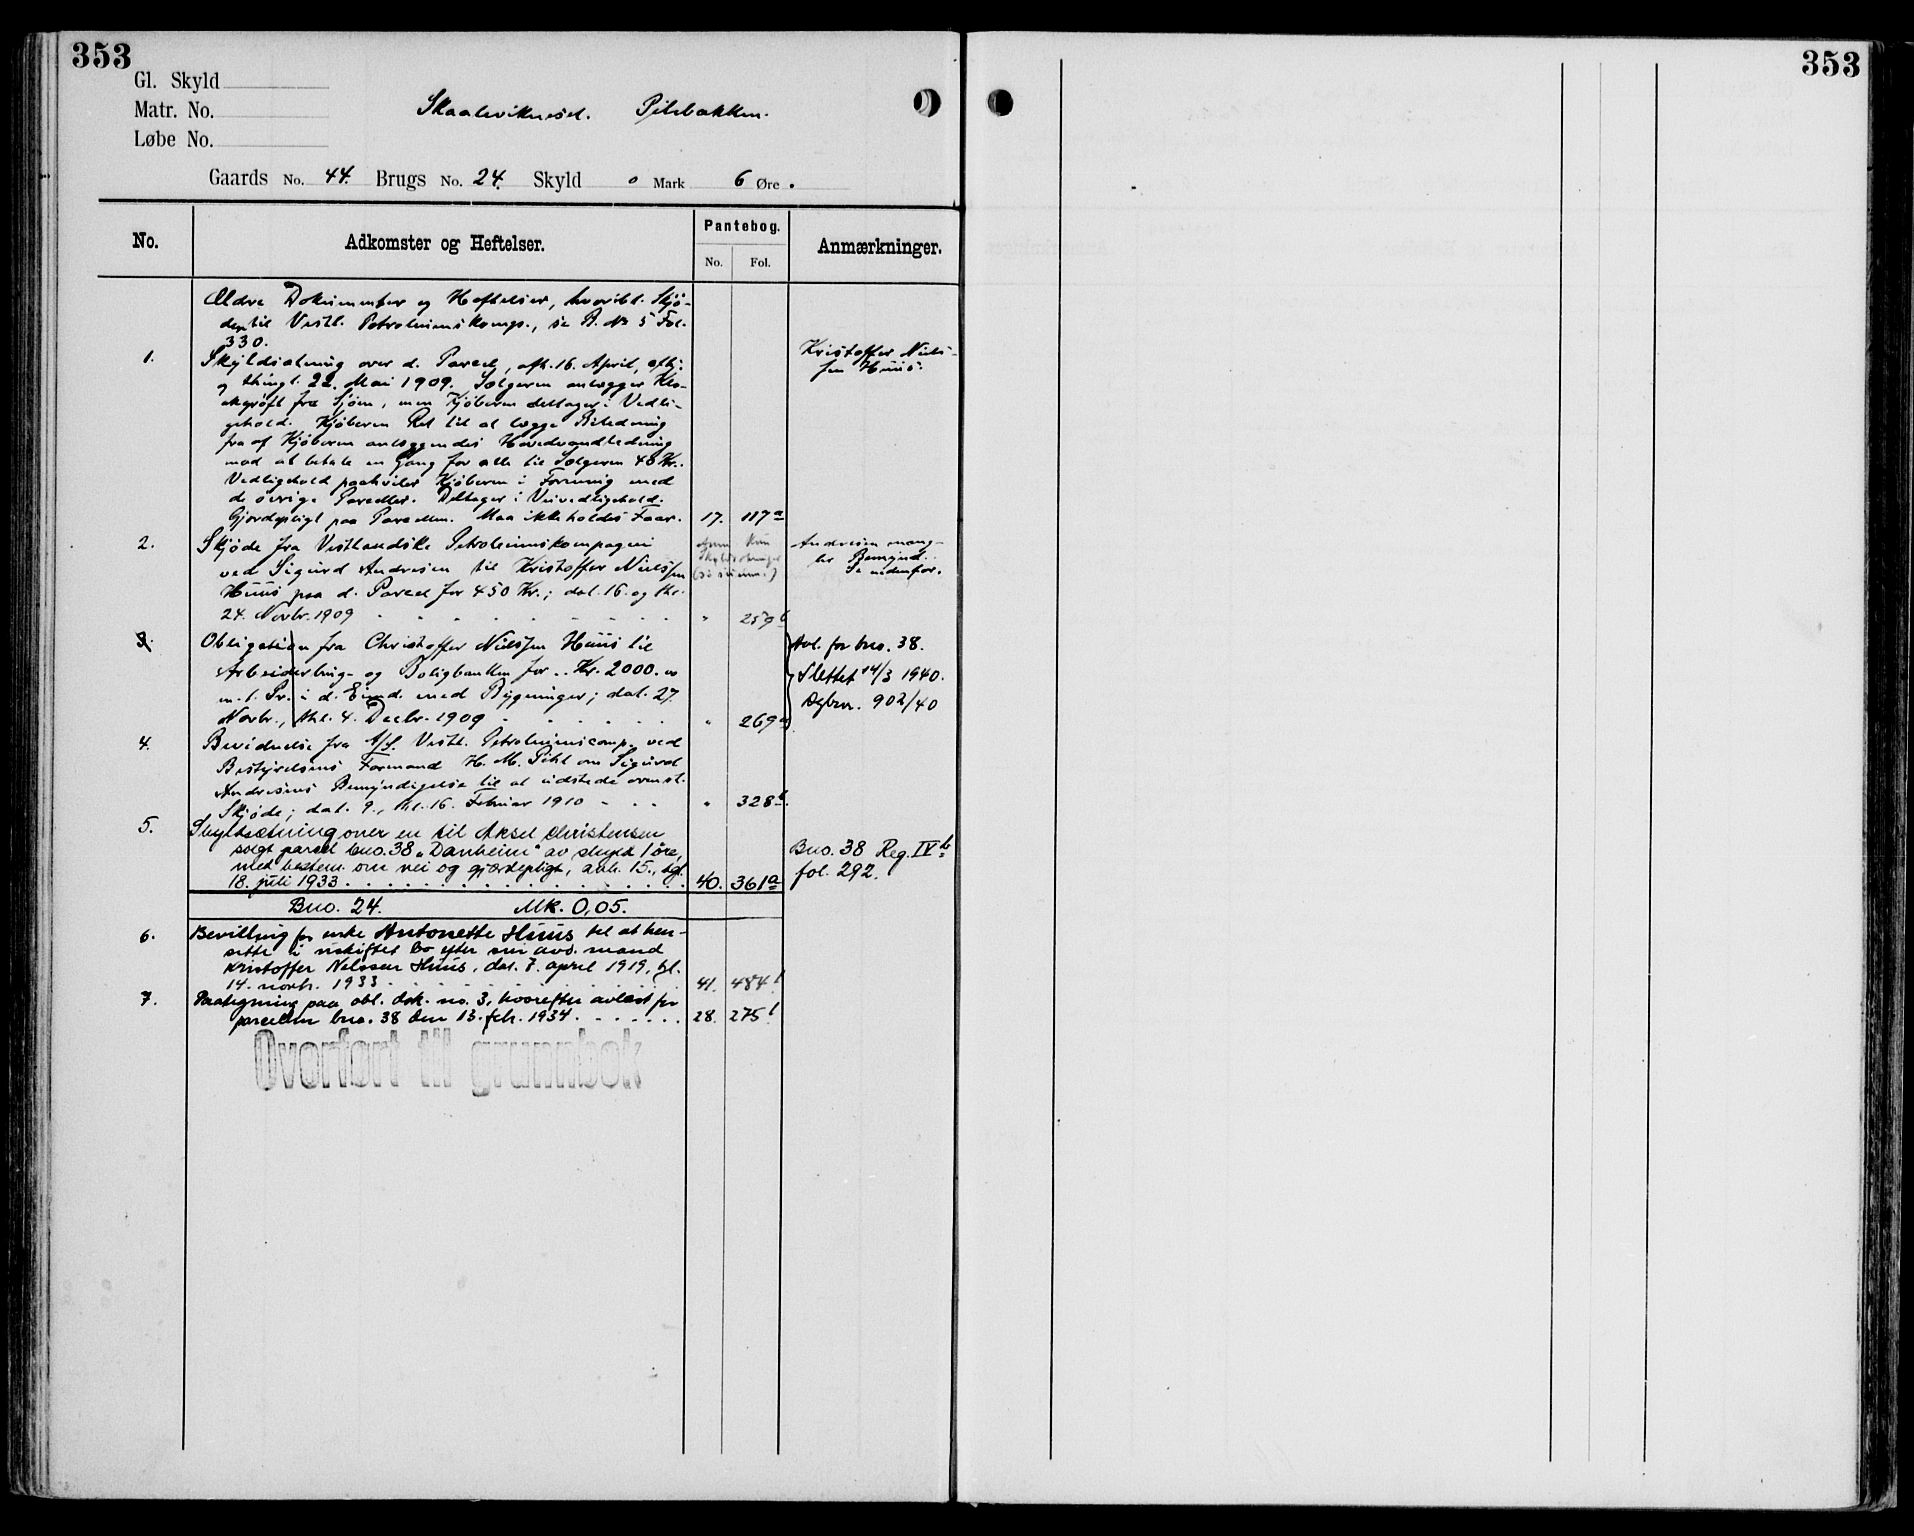 353
353
Gl. Skyld
Matr. No.
Løbe No.
Skaaleviknesset. Pilebakken.
Gaards No. 44. Brugs No. 24. Skyld 0 Mark 6 Øre.
No.
Adkomster og Heftelser.
Pantebog.
No. Fol.
Anmærkninger.
Ældre Dokumenter og Heftelser, hvoribl. Skjø-
der til Vestl. Petroleumskomp., se R. No 5 Fol.
330.
1. Skyldsætning over d. Parcel, afh. 16. April, afhj.
og thingl. 22. Mai 1909. Sælgeren anlægger Klo-
akgrøft fra Sjøen, men Kjøberen deltager i Vedli-
gehold. Kjøberen Ret til at lægge Biledning
fra af Kjøberen anlæggendes Hovedvandledning
mod at betale en Gang for alle til Sælgeren 40 Kr.
Vedligehold paahviler Kjøberen i Forening med
de øvrige Parceller. Deltager i Veivedligehold.
Gjerdepligt paa Parcellen. Maa ikke holdes Faar. 17. 117a
Kristoffer Niels-
sen Huus.
2. Skjøde fra Vestlandske Petroleumskompagni
ved Sigurd Andresen til Kristoffer Nielssen
Huus paa d. Parcel for 450 Kr.; dat. 16. og thl.
24. Novbr. 1909 " 259b
Andresen mang-
ler Bemynd.
Se nedenfor.
3. Obligation fra Christoffer Nielssen Huus til
Arbeiderbrug- og Boligbanken for .. Kr. 2000.00
m. 1. Pr. i d. Eiend. med Bygninger; dat. 27.
Novbr., thl. 4. Decbr. 1909 " 269a
Avl. for bno. 38.
Slettet 14/3 1940.
Dgbnr. 902/40
4. Bevidnelse fra A/S. Vestl. Petroleumscomp. ved
Bestyrelsens Formand H. M. Pihl om Sigurd
Andresens Bemyndigelse til at udstede ovenst.
Skjøde; dat. 9., thl. 16. Februar 1910 " 328b.
5. Skyldsætning over en til Aksel Christensen
solgt parcel bno. 38 „Danheim" av skyld 1 øre,
med bestem. om vei og gjærdepligt, avh. 15., tgl.
18. juli 1933 40. 361a
Bno. 38 Reg. IVb
fol. 292.
Bno. 24. Mk. 0,05.
6. Bevilling for enke Antonette Huus til at hen-
sitte i uskiftet bo efter sin avd. mand
Kristoffer Nelssen Huus, dat. 7. april 1919, tgl.
14. novbr. 1933 41. 484b
7. Paategning paa obl. dok. no. 3, hvorefter avlæst for
parcellen bno. 38 den 13. febr. 1934. 28. 275b
Overført til grunnbok